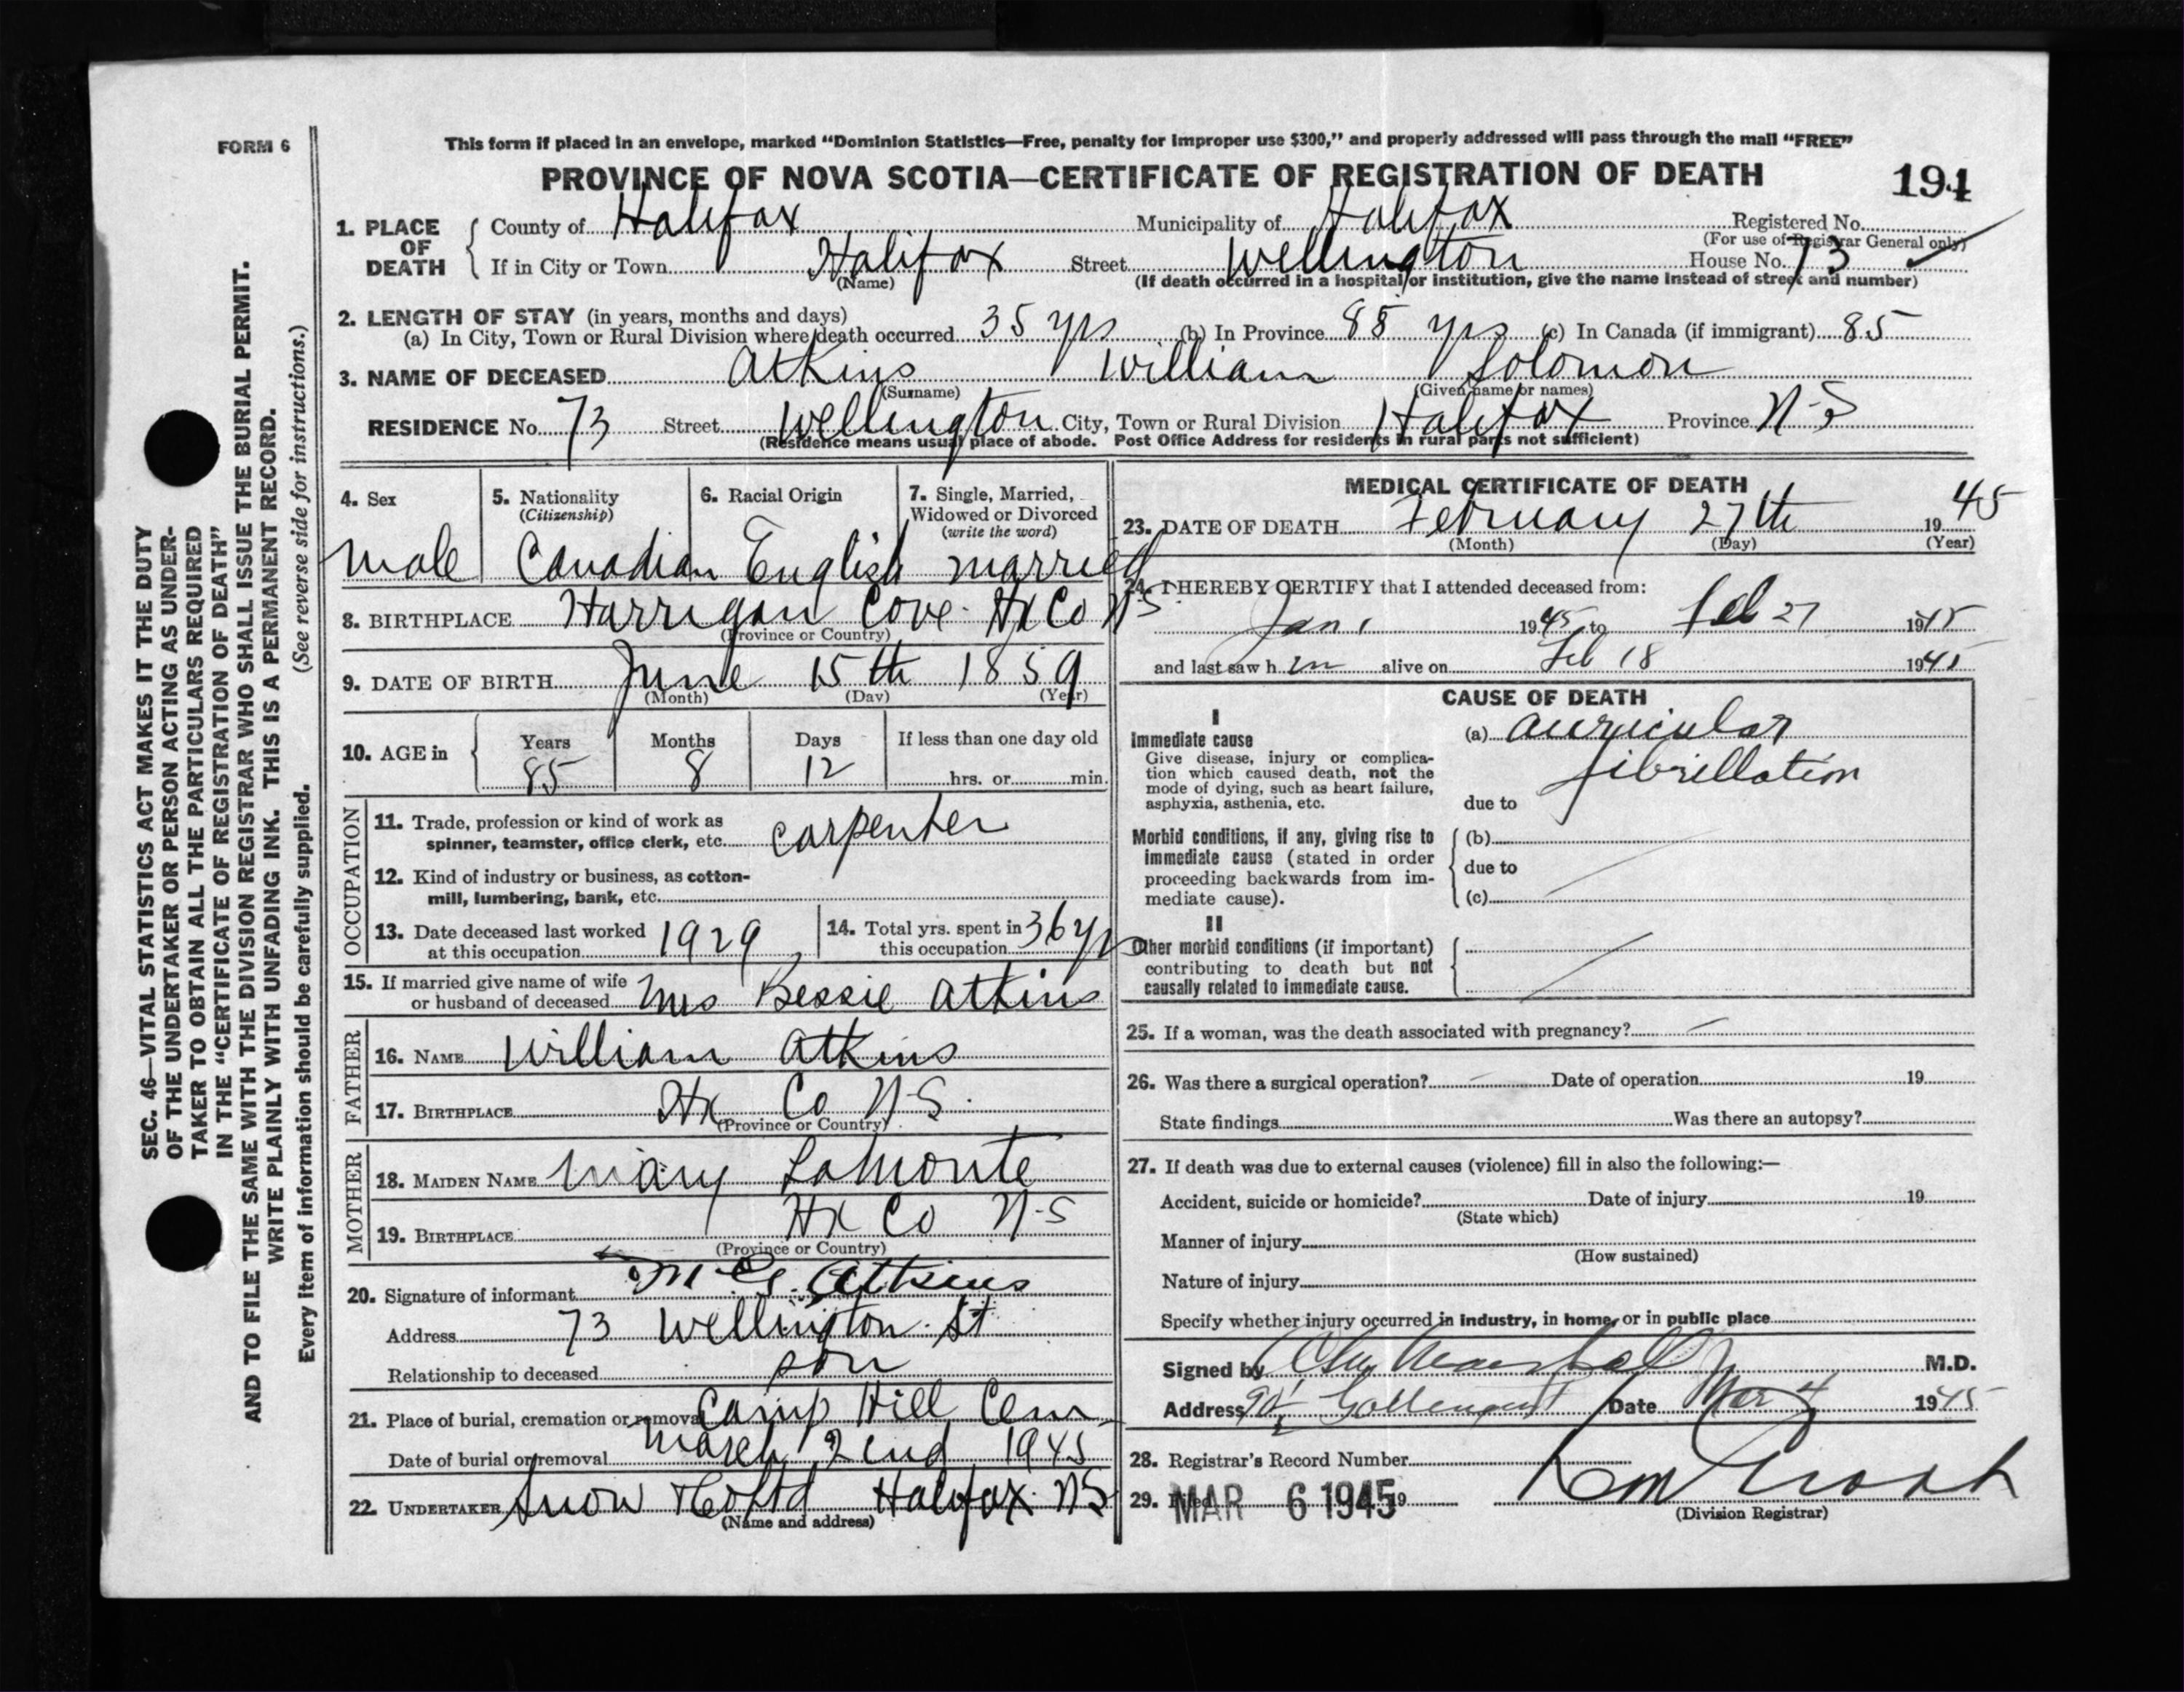 FORM 6
This form if placed in an envelope, marked "Dominion Statistics—Free, penalty for improper use $300," and properly addressed will pass through the mail "FREE"
PROVINCE OF NOVA SCOTIA—CERTIFICATE OF REGISTRATION OF DEATH
194
1. PLACE OF DEATH
County of Halifax Municipality of Halifax Registered No.
(For use of Registrar General only)
If in City or Town Halifax Street Wellington House No. 73
(Name) (If death occurred in a hospital or institution, give the name instead of street and number)
2. LENGTH OF STAY (in years, months and days)
(a) In City, Town or Rural Division where death occurred 35 yrs (b) In Province 85 yrs (c) In Canada (if immigrant) 85
3. NAME OF DECEASED Atkins William Solomon
(Surname) (Given name or names)
RESIDENCE No. 73 Street Wellington City, Town or Rural Division Halifax Province N-S
(Residence means usual place of abode. Post Office Address for residents in rural parts not sufficient)
4. Sex
male
5. Nationality
(Citizenship)
Canadian
6. Racial Origin
English
7. Single, Married,
Widowed or Divorced
(write the word)
married
8. BIRTHPLACE Harrigan Cove Hx Co N S
(Province or Country)
9. DATE OF BIRTH June 15th 1859
(Month) (Day) (Year)
10. AGE in
Years Months Days If less than one day old
85 8 12 hrs. or min.
OCCUPATION
11. Trade, profession or kind of work as
spinner, teamster, office clerk, etc. carpenter
12. Kind of industry or business, as cotton-
mill, lumbering, bank, etc.
13. Date deceased last worked
at this occupation 1929
14. Total yrs. spent in
this occupation 36 yrs
15. If married give name of wife
or husband of deceased Mrs Bessie Atkins
FATHER
16. NAME William Atkins
17. BIRTHPLACE Hx Co N-S.
(Province or Country)
MOTHER
18. MAIDEN NAME Mary LaMonte
19. BIRTHPLACE Hx Co N-S
(Province or Country)
20. Signature of informant Atkins
Address 73 Wellington St
Relationship to deceased son
21. Place of burial, cremation or removal Camp Hill Cem
Date of burial or removal March 2end 1945
22. UNDERTAKER Snow & Co Ltd Halifax N S
(Name and address)
MEDICAL CERTIFICATE OF DEATH
23. DATE OF DEATH February 27th 1945
(Month) (Day) (Year)
24. I HEREBY CERTIFY that I attended deceased from:
Jan 1 1945 to Feb 27 1945
and last saw him alive on Feb 18 1945
CAUSE OF DEATH
I
Immediate cause
Give disease, injury or complica-
tion which caused death, not the
mode of dying, such as heart failure,
asphyxia, asthenia, etc.
(a) auricular
fibrillation
due to
Morbid conditions, if any, giving rise to
immediate cause (stated in order
proceeding backwards from im-
mediate cause).
(b)
due to
(c)
II
Other morbid conditions (if important)
contributing to death but not
causally related to immediate cause.
25. If a woman, was the death associated with pregnancy?
26. Was there a surgical operation? Date of operation 19
State findings Was there an autopsy?
27. If death was due to external causes (violence) fill in also the following:—
Accident, suicide or homicide? Date of injury 19
(State which)
Manner of injury
(How sustained)
Nature of injury
Specify whether injury occurred in industry, in home, or in public place
Signed by Marshall M.D.
Address Date Mar 4 1945
28. Registrar's Record Number
29. Filed MAR 6 1945 19
(Division Registrar)
SEC. 46—VITAL STATISTICS ACT MAKES IT THE DUTY
OF THE UNDERTAKER OR PERSON ACTING AS UNDER-
TAKER TO OBTAIN ALL THE PARTICULARS REQUIRED
IN THE "CERTIFICATE OF REGISTRATION OF DEATH"
AND TO FILE THE SAME WITH THE DIVISION REGISTRAR WHO SHALL ISSUE THE BURIAL PERMIT.
WRITE PLAINLY WITH UNFADING INK. THIS IS A PERMANENT RECORD.
Every item of information should be carefully supplied. (See reverse side for instructions.)